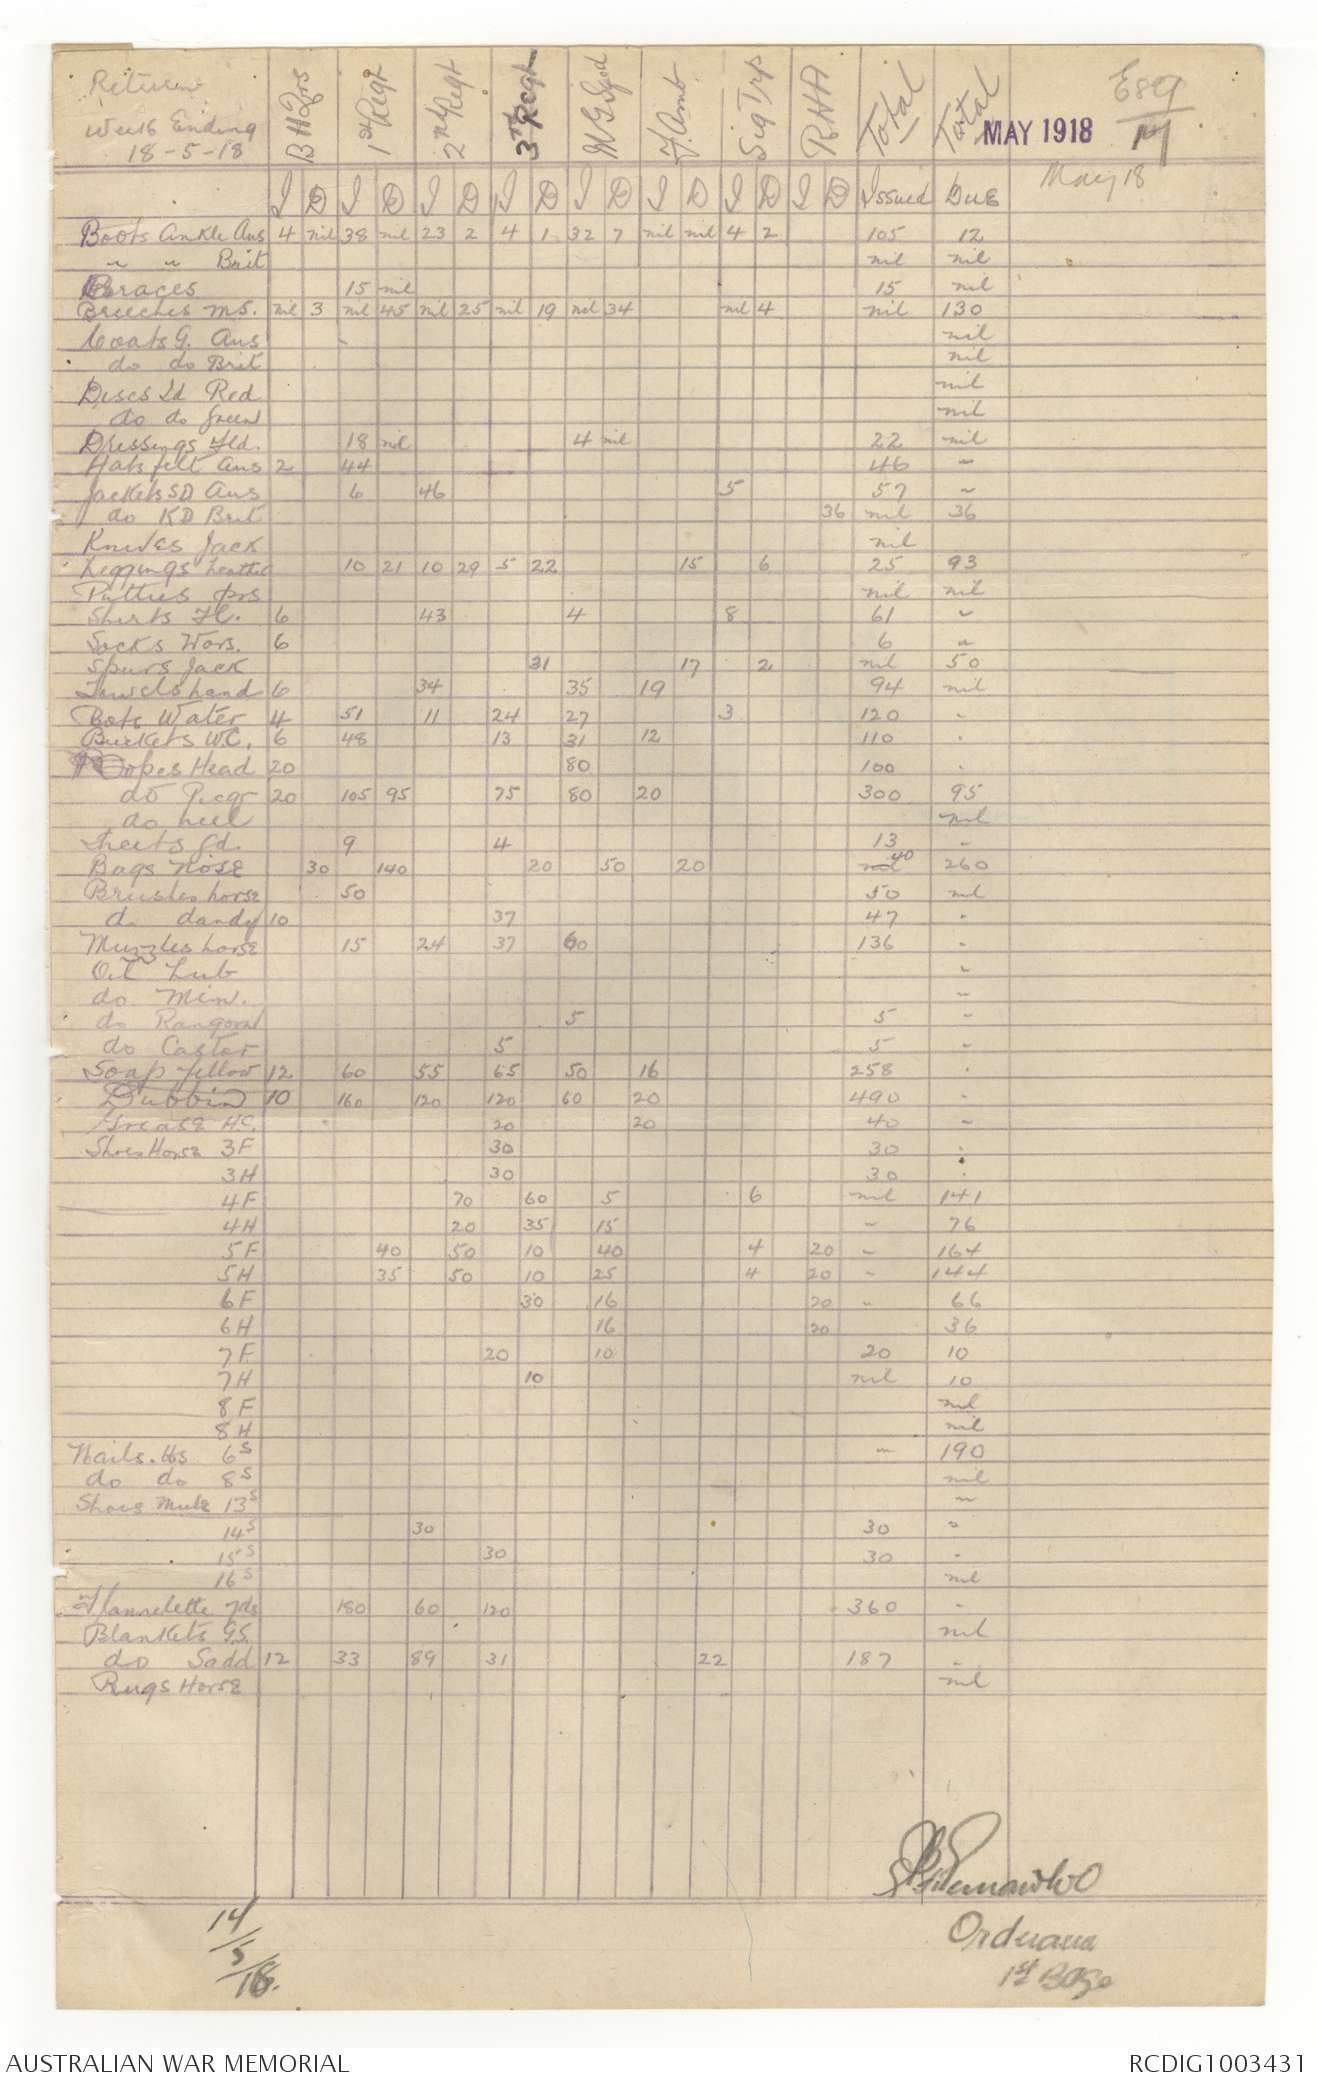 Return
Week Ending
18-5-18
B H Qrs 1st Regt 2nd Regt 3rd Regt M G Sqd F. Amb Sig Trp RHA Total Total
E89/17
MAY 1918
May 18
I D I D I D I D I D I D I D I D Issued Due
Boots Ankle Aus 4 nil 38 nil 23 2 4 1 32 7 nil nil 4 2 105 12
" " Brit nil nil
Braces 15 nil 15 nil
Breeches M.S. nil 3 nil 45 nil 25 nil 19 nil 34 nil 4 nil 130
Coats G. Aus nil
do do Brit nil
Discs Id Red nil
do do Green nil
Dressings Fld. 18 nil 4 nil 22 nil
Hats felt Aus 2 44 46 ~
Jackets SD Aus 6 46 5 57 ~
do KD Brit 36 nil 36
Knives Jack nil
Leggings Leather 10 21 10 29 5 22 15 6 25 93
Putties prs nil nil
Shirts Fl. 6 43 4 8 61 ~
Socks Wors. 6 6 ~
Spurs Jack 31 17 2 nil 50
Towels hand 6 34 35 19 94 nil
Bots Water 4 51 11 24 27 3 120 -
Buckets W.C. 6 48 13 31 12 110 .
Ropes Head 20 80 100 .
do Picqr 20 105 95 75 80 20 300 95
do heel nil
Sheets Gd. 9 4 13 -
Bags Nose 30 140 20 50 20 nil 40 260
Brushes horse 50 50 nil
do dandy 10 37 47 "
Muzzles horse 15 24 37 60 136 -
Oil Lub ~
do Min. ~
do Rangoon 5 5 ~
do Castor 5 5 ~
Soap yellow 12 60 55 65 50 16 258 .
Dubbin 10 160 120 120 60 20 490 -
Grease H.C. 20 20 40 ~
Shoes Horse 3F 30 30 .
3H 30 30 .
4F 70 60 5 6 nil 141
4H 20 35 15 ~ 76
5F 40 50 10 40 4 20 ~ 164
5H 35 50 10 25 4 20 - 144
6F 30 16 20 ~ 66
6H 16 20 36
7F 20 10 20 10
7H 10 nil 10
8F nil
8H nil
Nails. Hs 6s ~ 190
do do 8s nil
Shoes Mule 13s ~
14s 30 30 ~
15s 30 30 -
16s nil
Flannelette yds 180 60 120 360 -
Blankets G.S. nil
do Sadd 12 33 89 31 22 187 -
Rugs Horse nil
Ordnance
1st Bde
14/5/18.
AUSTRALIAN WAR MEMORIAL
RCDIG1003431